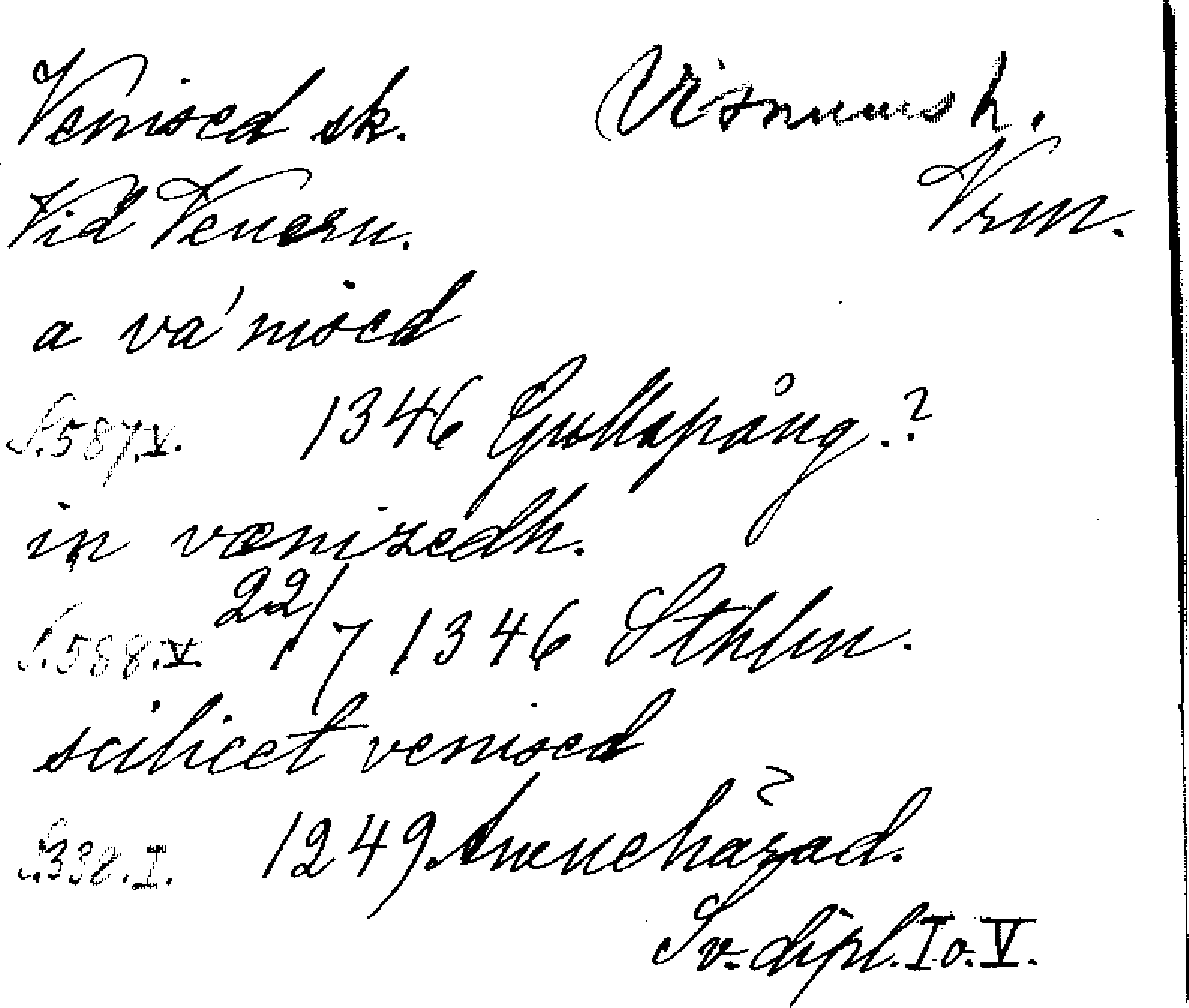 Venised sk. Visnums h.
Vid Venern. Vrm.
a vá nised
S. 587. V. 1346 Gullspång.?
in vænizedh.
S. 588. V. 22/7 1346 Sthlm.
scilicet venised
S. 338. I. 1249 Amnehärad. ?
Sv. dipl. I o. V.